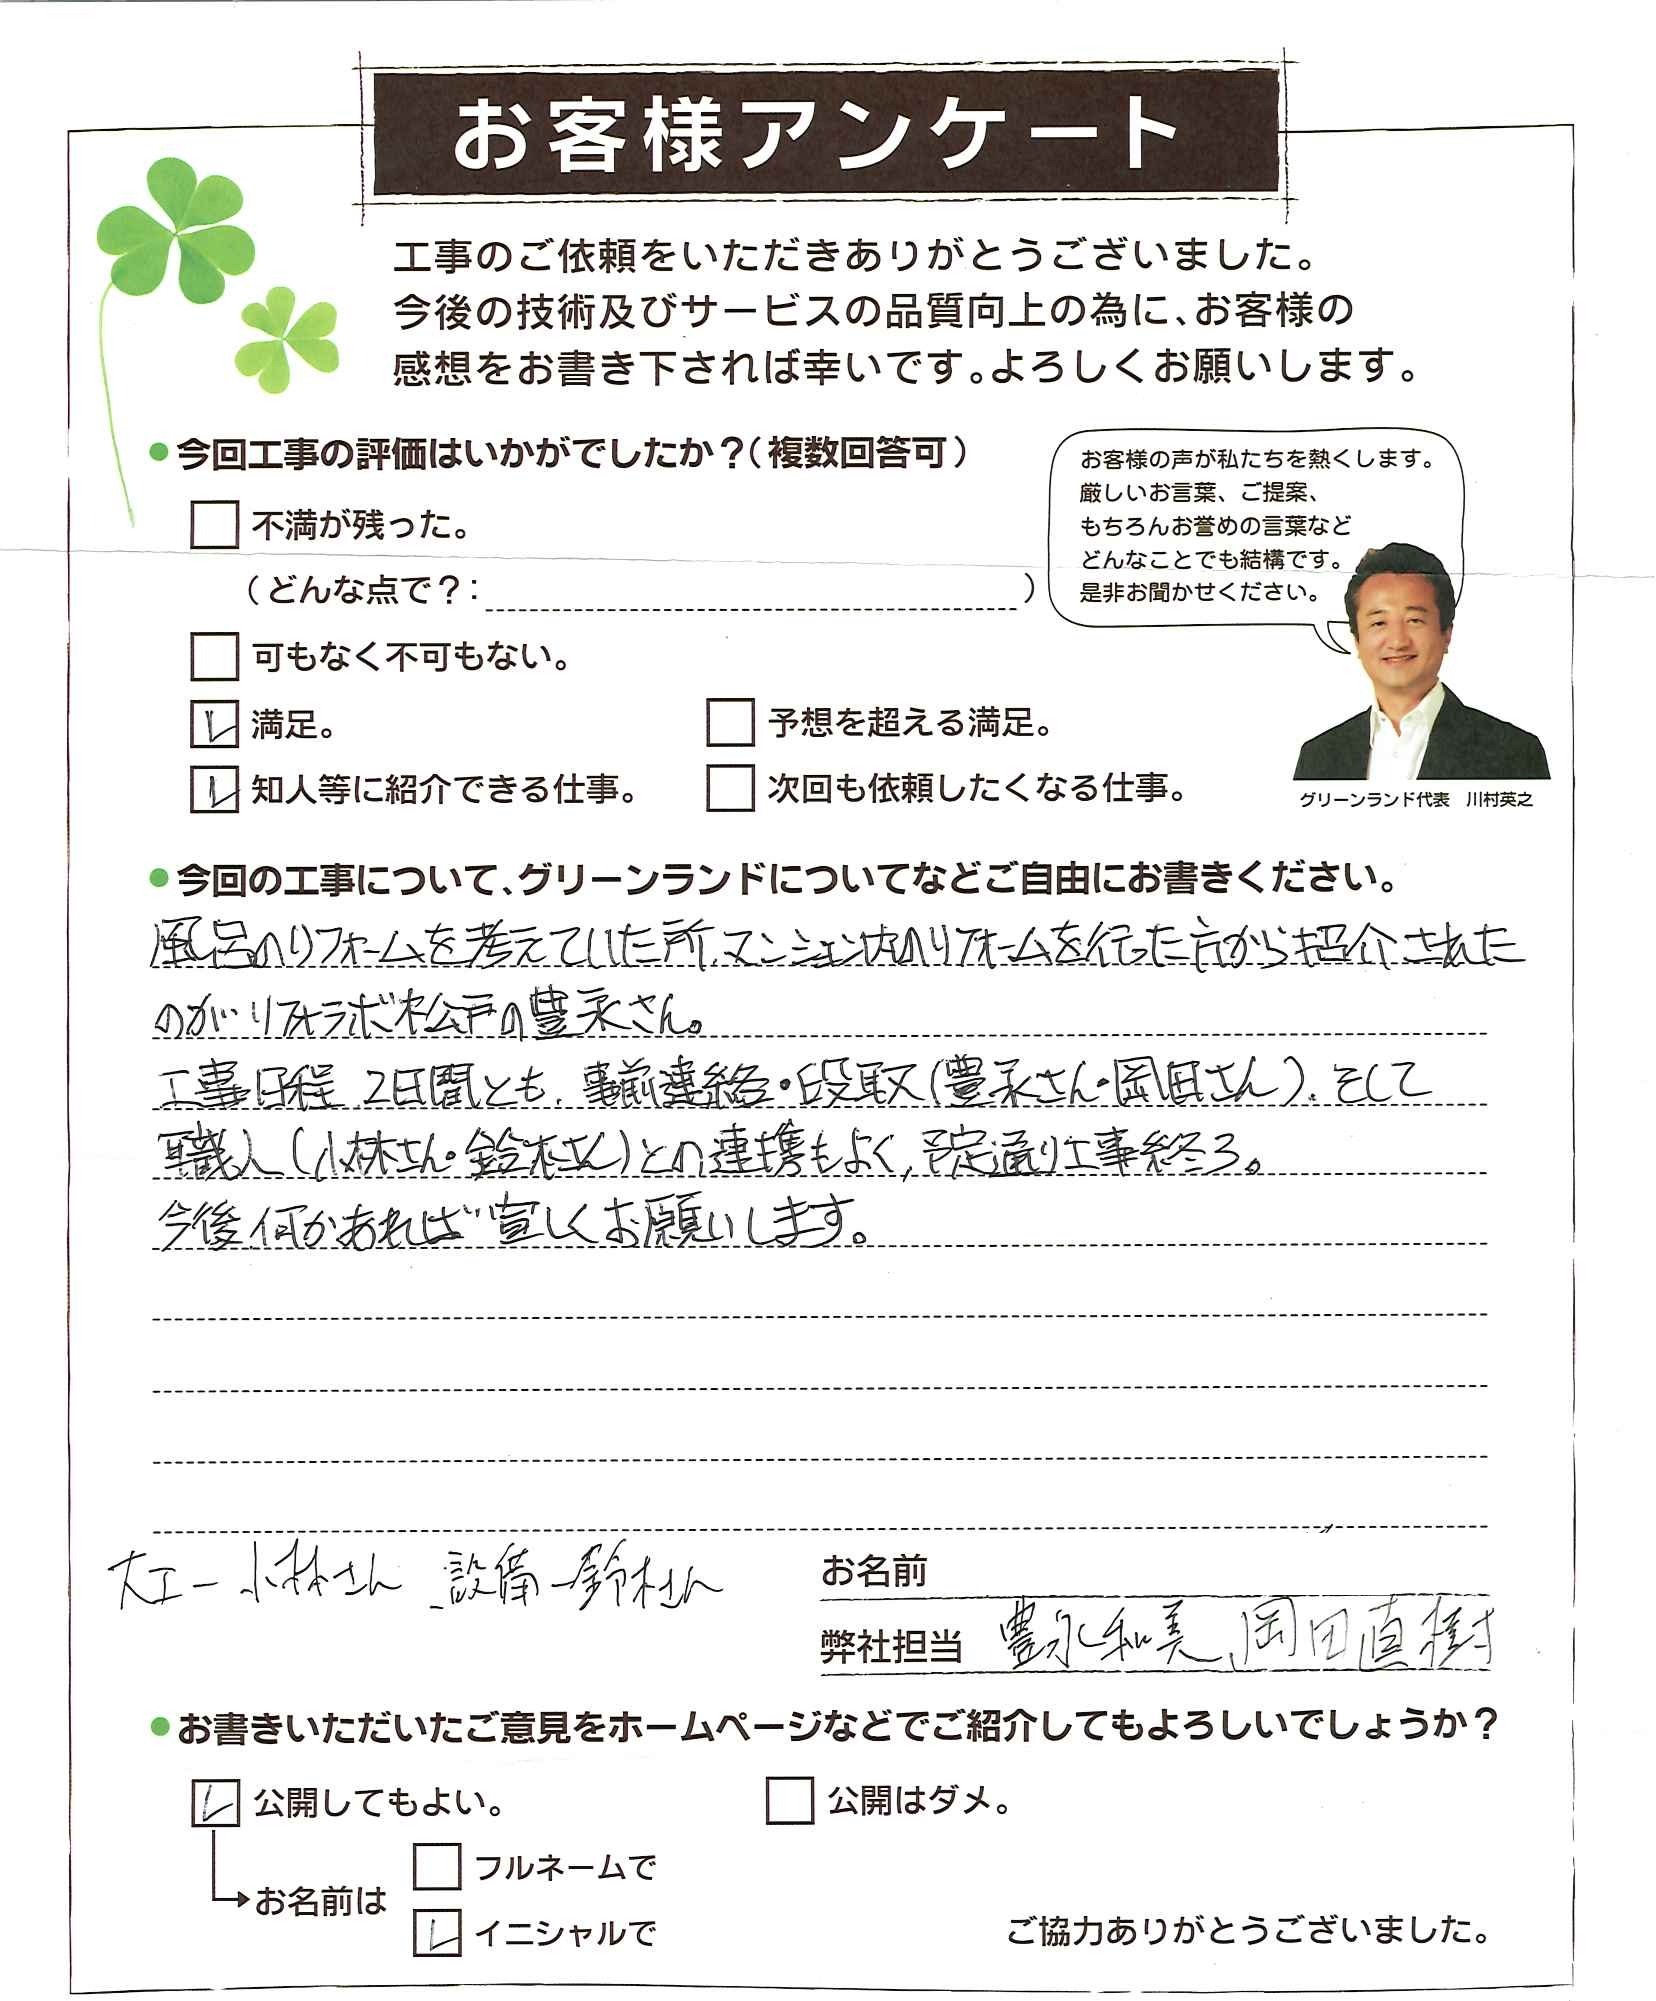 お客様アンケート
工事のご依頼をいただきありがとうございました。
今後の技術及びサービスの品質向上の為に、お客様の
感想をお書き下されば幸いです。よろしくお願いします。
●今回工事の評価はいかがでしたか？（複数回答可）
不満が残った。
（どんな点で？：　）
可もなく不可もない。
満足。
予想を超える満足。
知人等に紹介できる仕事。
次回も依頼したくなる仕事。
お客様の声が私たちを熱くします。
厳しいお言葉、ご提案、
もちろんお誉めの言葉など
どんなことでも結構です。
是非お聞かせください。
グリーンランド代表　川村英之
●今回の工事について、グリーンランドについてなどご自由にお書きください。
風呂のリフォームを考えていた所、マンション内のリフォームを行った方から紹介された
のが リフォラボ松戸の豊永さん。
工事日程、2日間とも、事前連絡・段取（豊永さん・岡田さん）、そして
職人（小林さん・鈴木さん）との連携もよく、予定通り工事終了。
今後、何かあれば宜しくお願いします。
大工ー小林さん　設備ー鈴木さん
お名前
弊社担当　豊永和美、岡田直樹
●お書きいただいたご意見をホームページなどでご紹介してもよろしいでしょうか？
公開してもよい。
公開はダメ。
お名前は
フルネームで
イニシャルで
ご協力ありがとうございました。